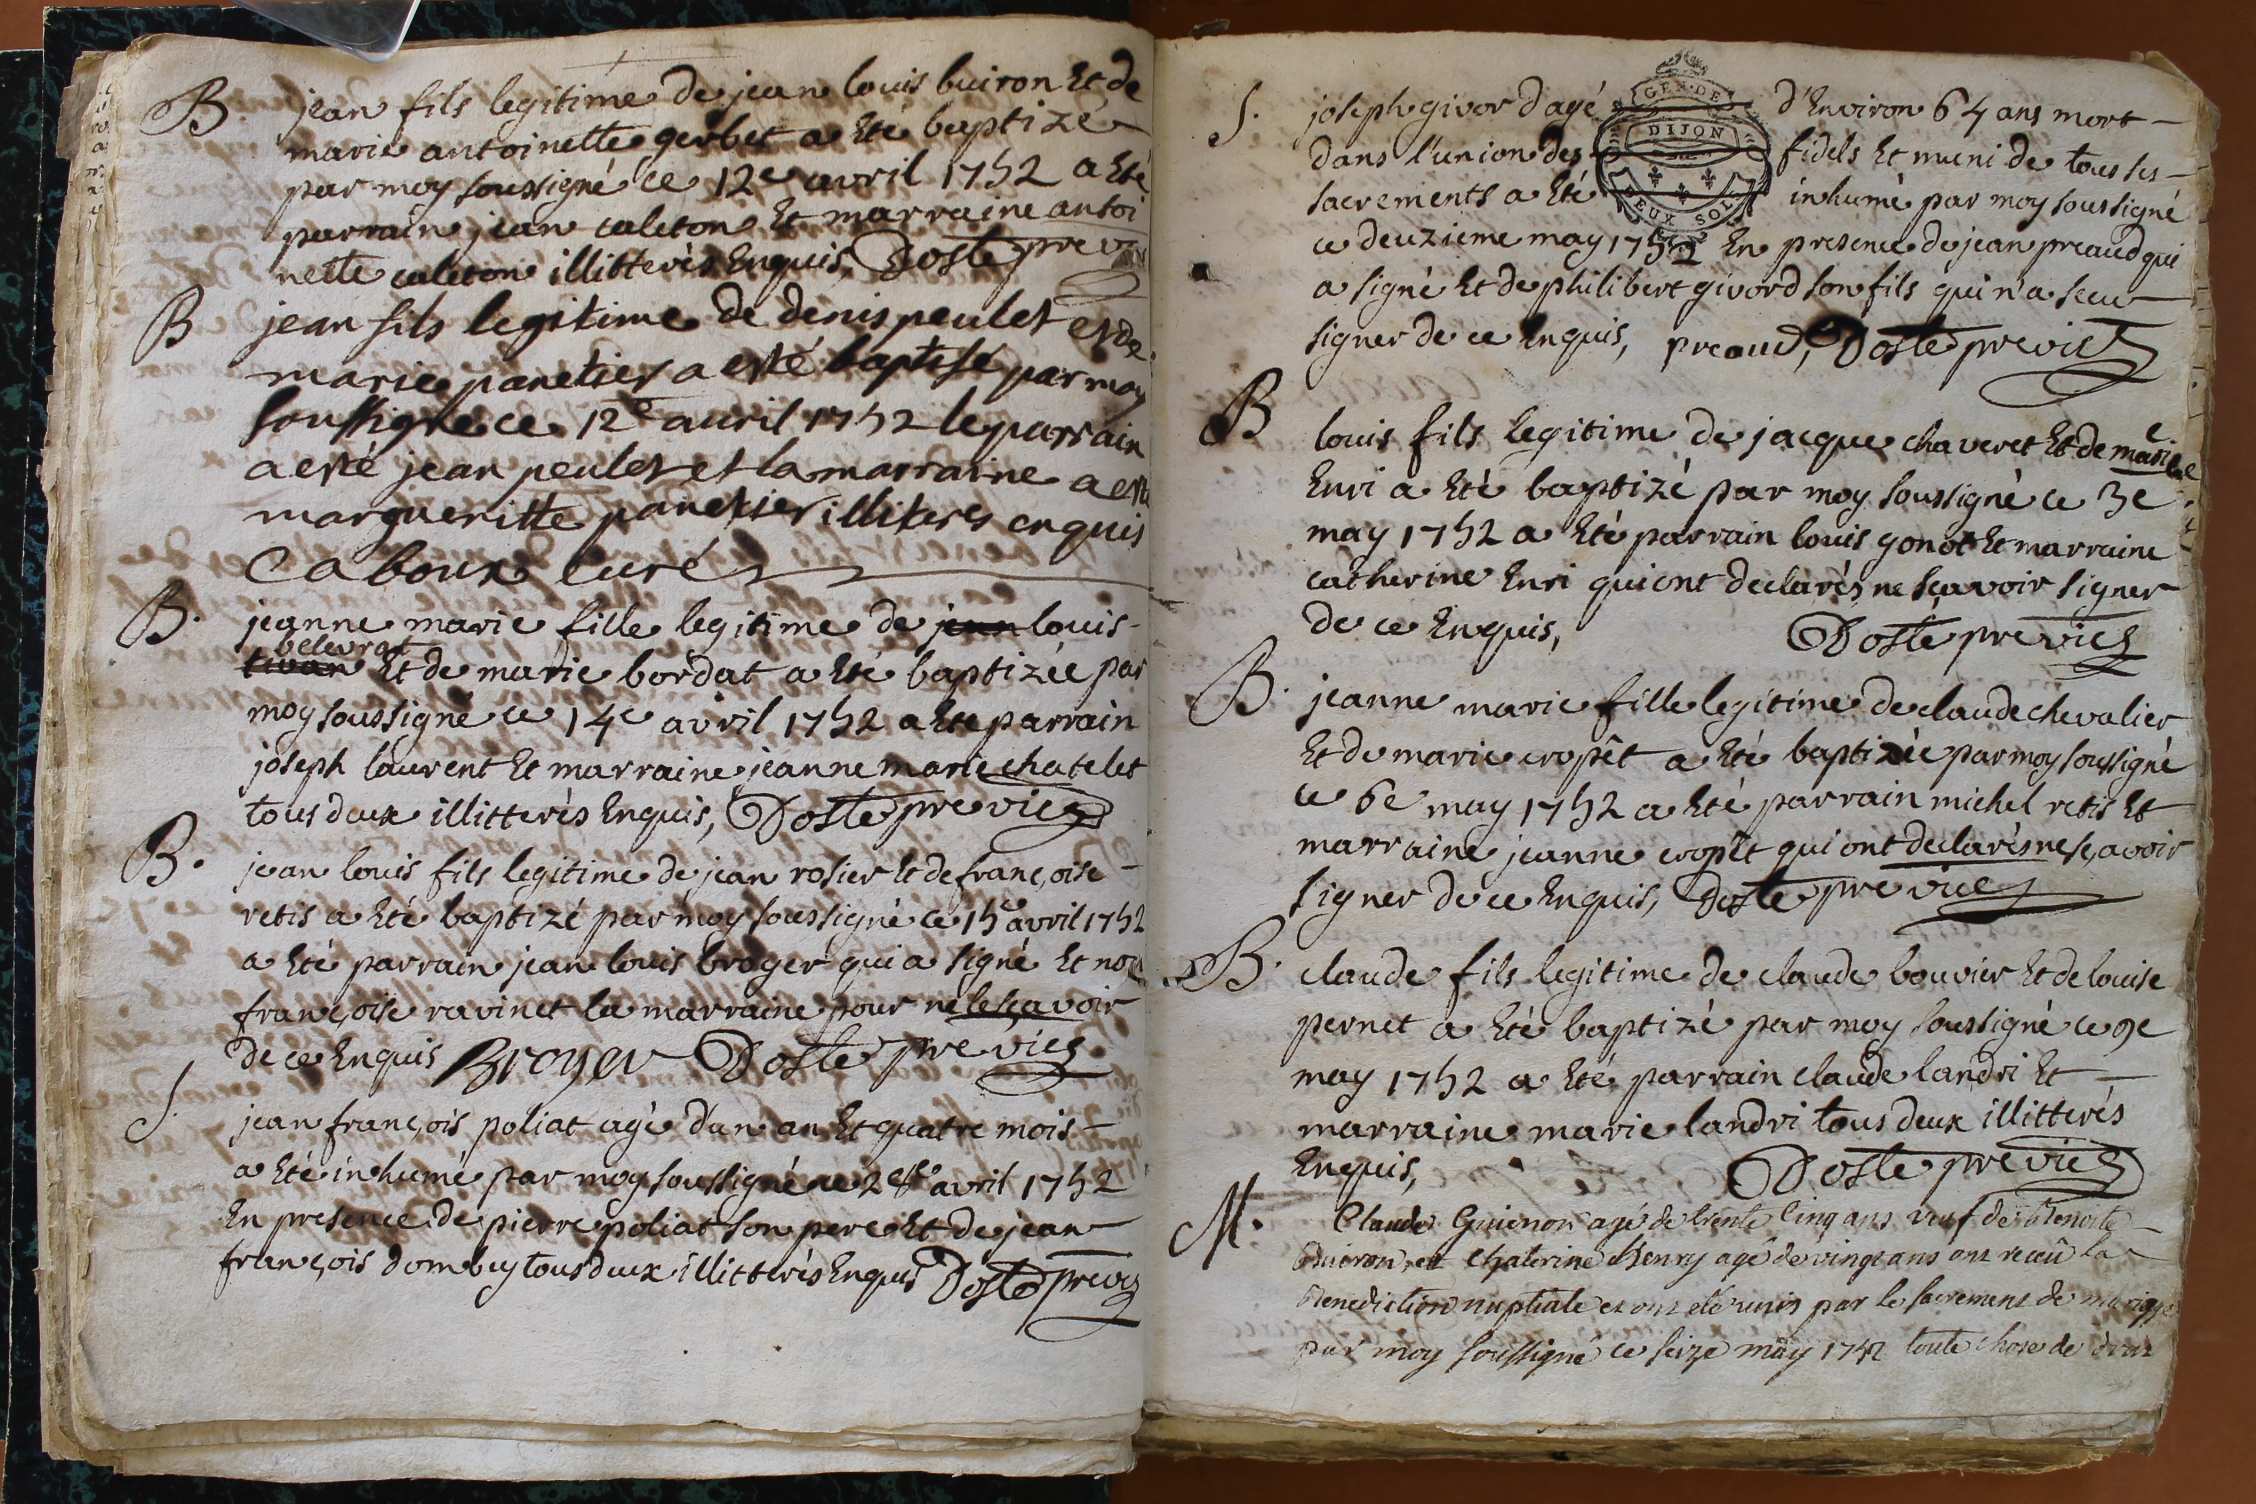 B. jean fils legitime de jean louis buiron Et de
marie antoinette gerbet a Eté baptizé
par moy soussigné ce 12e avril 1752 a Eté
parrain jean caleton Et marraine antoi
nette caleton illitterés Enquis, Dosle pre vic
B jean fils legitime de denis peulet et de
marie panetier a esté baptisé par moy
soussigné ce 12e auril 1752 le parrain
a esté jean peulet et la marraine a esté
margueritte panetier illiterés enquis
Caboux curé
B. jeanne marie fille legitime de jean louis
belevrat
tivan Et de marie bordat a Eté baptizée par
moy soussigné ce 14e avril 1752 a Eté parrain
joseph laurent Et marraine jeanne marie chatelet
tous deux illitterés Enquis, Dosle pre vic
B. jean louis fils legitime de jean rosier Et de françoise
retis a Eté baptizé par moy soussigné ce 15e avril 1752
a Eté parrain jean louis broger qui a signé Et non
françoise ravinet la marraine pour ne le sçavoir
de ce Enquis Broyer Dosle pre vic
S. jean françois poliat agé d'un an Et quatre mois
a Eté inhumé par moy soussigné ce avril 1752
En presence de pierre poliat son pere Et de jean
françois dombey tous deux illitterés Enquis Dosle pre vic
S. joseph givord agé d'Environ 64 ans mort
GEN. DE
DIJON
DEUX SOLS
dans l'union des fidels Et muni de tous ses
sacrements a Eté inhumé par moy soussigné
ce deuzieme may 1752 En presence de jean preaud qui
a signé Et de philibert givord son fils qui n'a sceu
signer de ce Enquis, preaud, Dosle pre vic
B louis fils legitime de jacque chaveret Et de marie
Enri a Eté baptizé par moy soussigné ce 3e
may 1752 a Eté parrain louis gonot Et marraine
catherine Enri qui ont declarés ne sçavoir signer
de ce Enquis, Dosle pre vic
B. jeanne marie fille legitime de claude chevalier
Et de marie cropêt a Eté baptizée par moy soussigné
ce 6e may 1752 a Eté parrain michel retis Et
marraine jeanne cropêt qui ont declarés ne sçavoir
signer de ce Enquis, Dosle pre vic
B. claude fils legitime de claude bouvier Et de louise
pernet a Eté baptizé par moy soussigné ce 9e
may 1752 a Eté parrain claude landri Et
marraine marie landri tous deux illitterés
Enquis, Dosle pre vic
M. Claude Guienon agé de trente Cinq ans veuf de Benoite
Buiron, et Chaterine henry agé de vingt ans ont receû la
Benediction nuptiale et ont eté unis par le sacrement de mariage
par moy soussigné ce seize may 1752 toute chose de droit